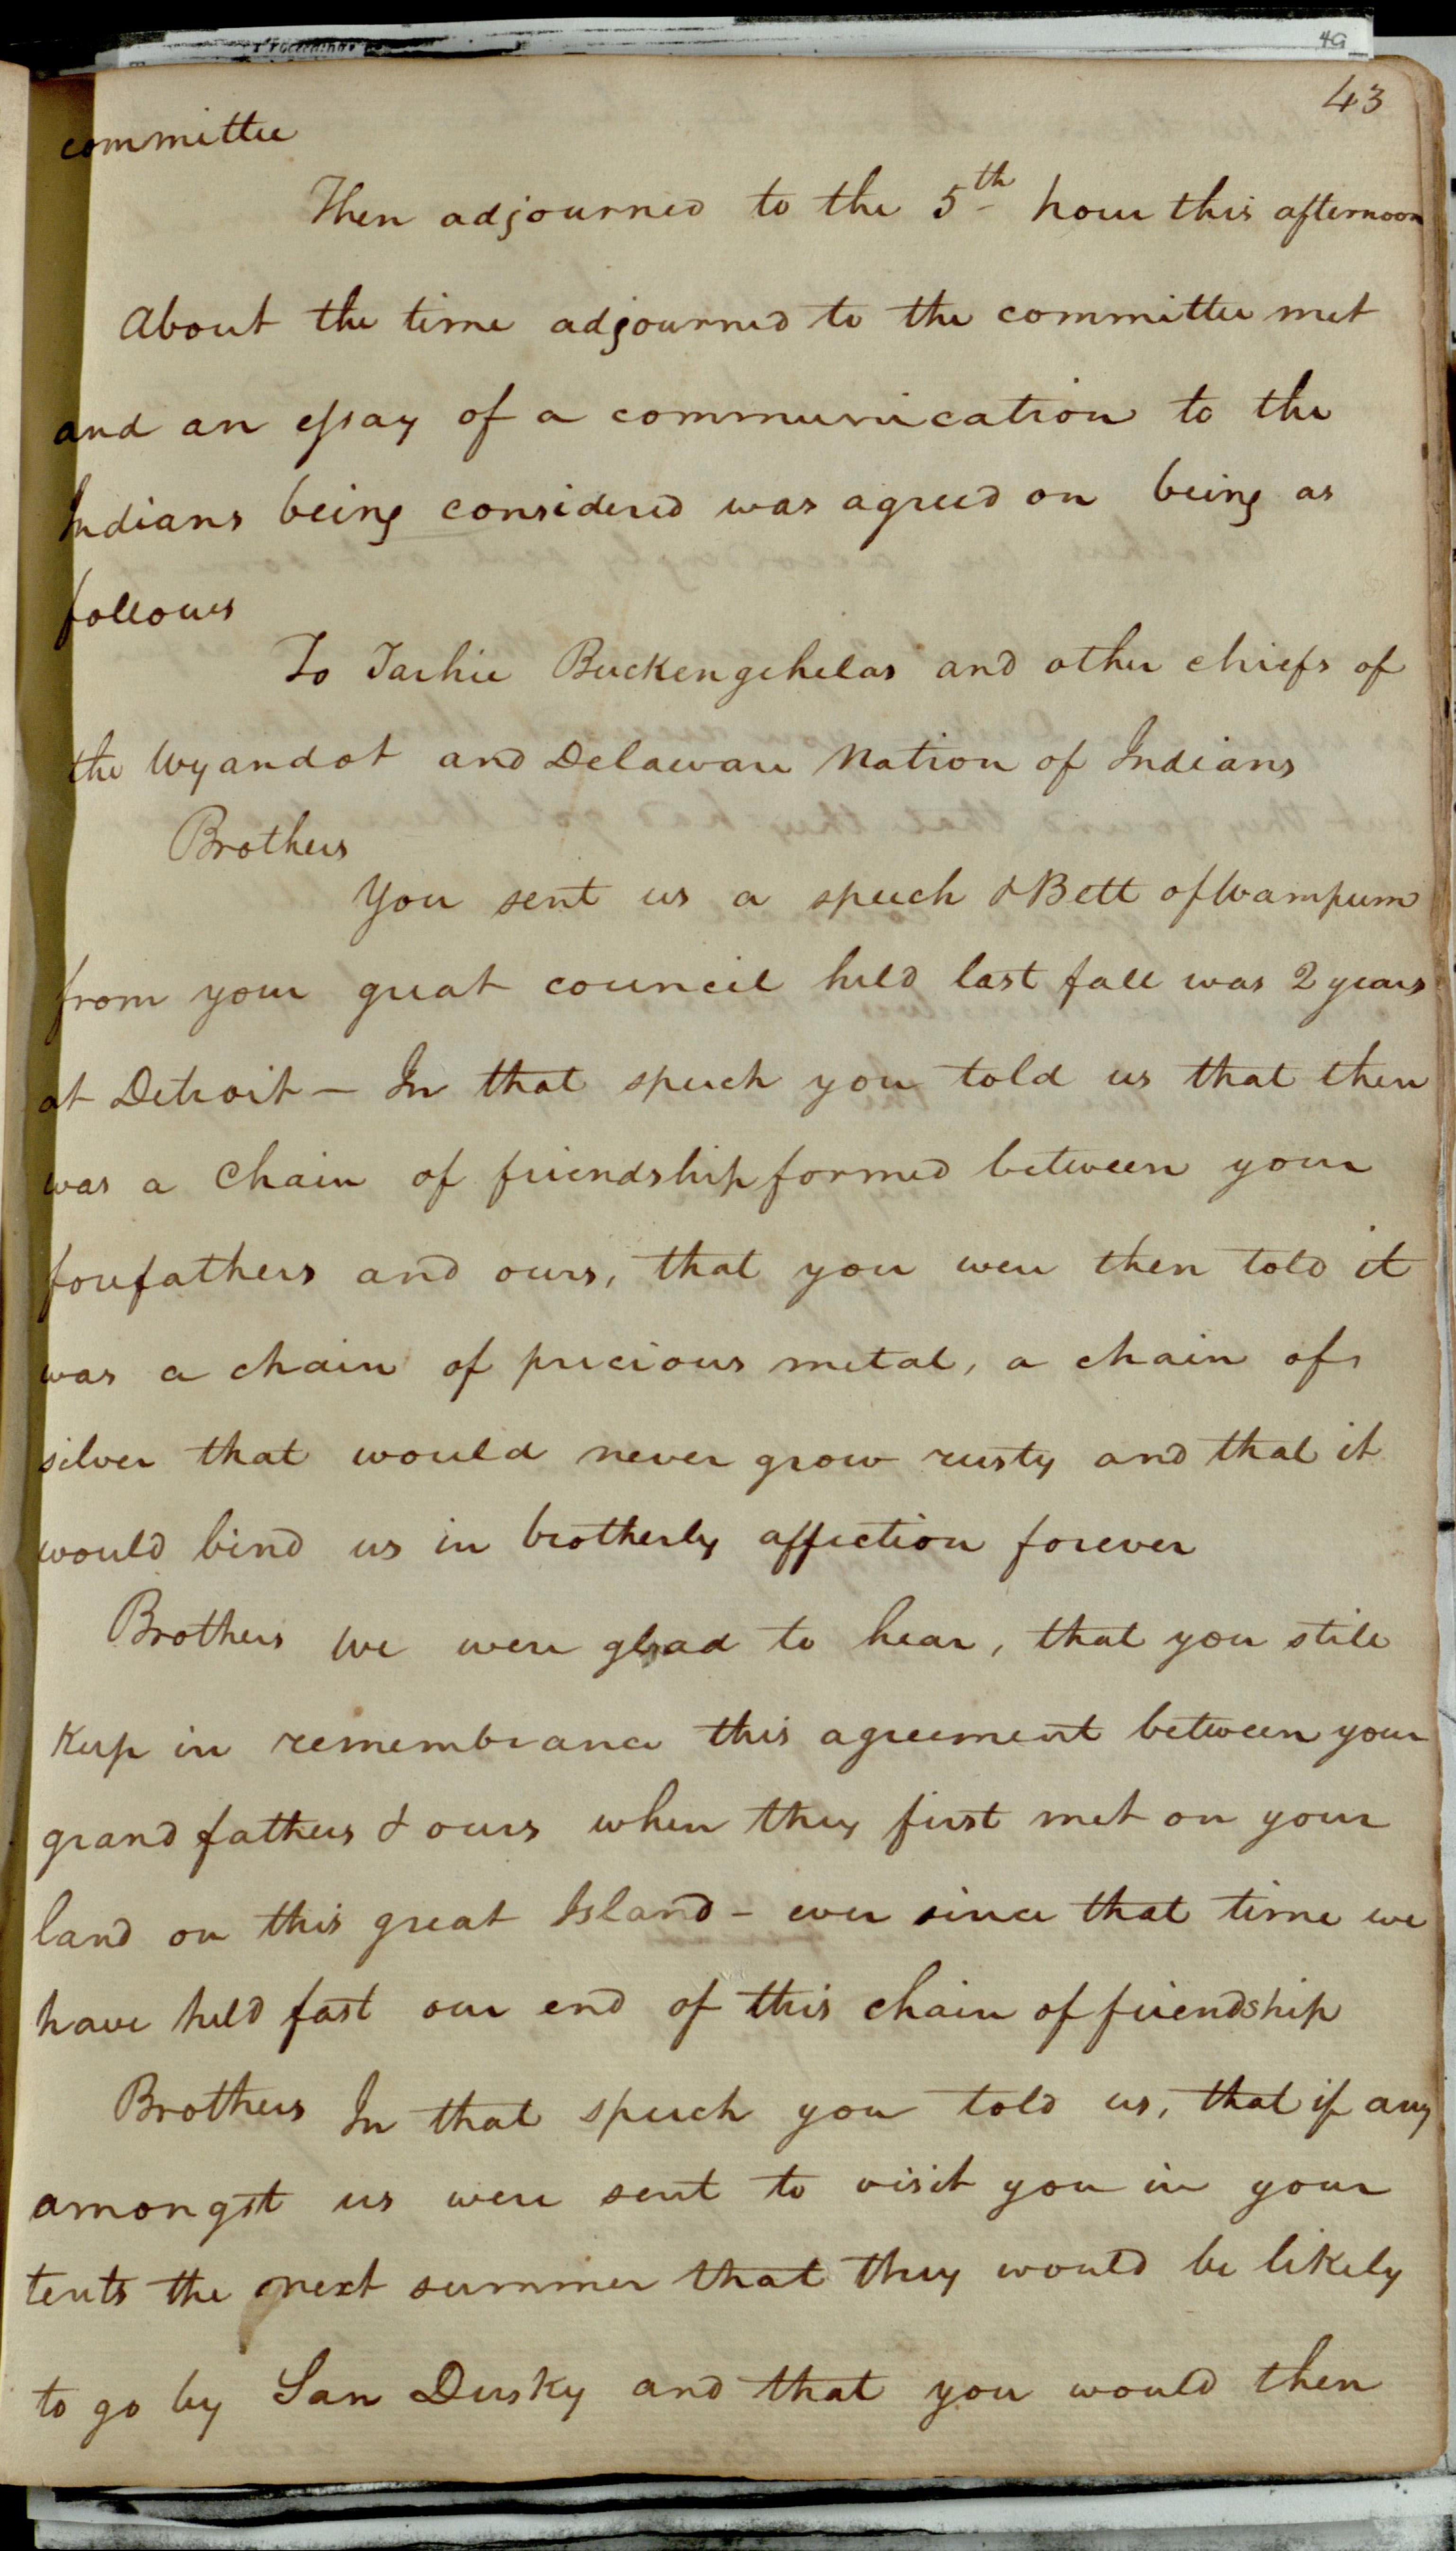 43
committee
Then adjourned to the 5th hour this afternoon
About the time adjourned to the committee met
and an essay of a communication to the
Indians being considered was agreed on being as
follows
To Tarhie Buckengehelas and other chiefs of
the Wyandot and Delaware Nation of Indians
Brothers
You sent us a speech & Belt of Wampum
from your great council held last fall was 2 years
at Detroit – In that speech you told us that there
was a Chain of friendship formed between your
forefathers and ours, that you were then told it
was a chain of precious metal, a chain of
silver that would never grow rusty and that it
would bind us in brotherly affection forever
Brothers We were glad to hear, that you still
Keep in remembrance this agreement between your
grand fathers & ours when they first met on your
land on this great Island – ever since that time we
have held fast our end of this chain of friendship
Brothers In that speech you told us, that if any
amongst us were sent to visit you in your
tents the next summer that they would be likely
to go by San Dusky and that you would then